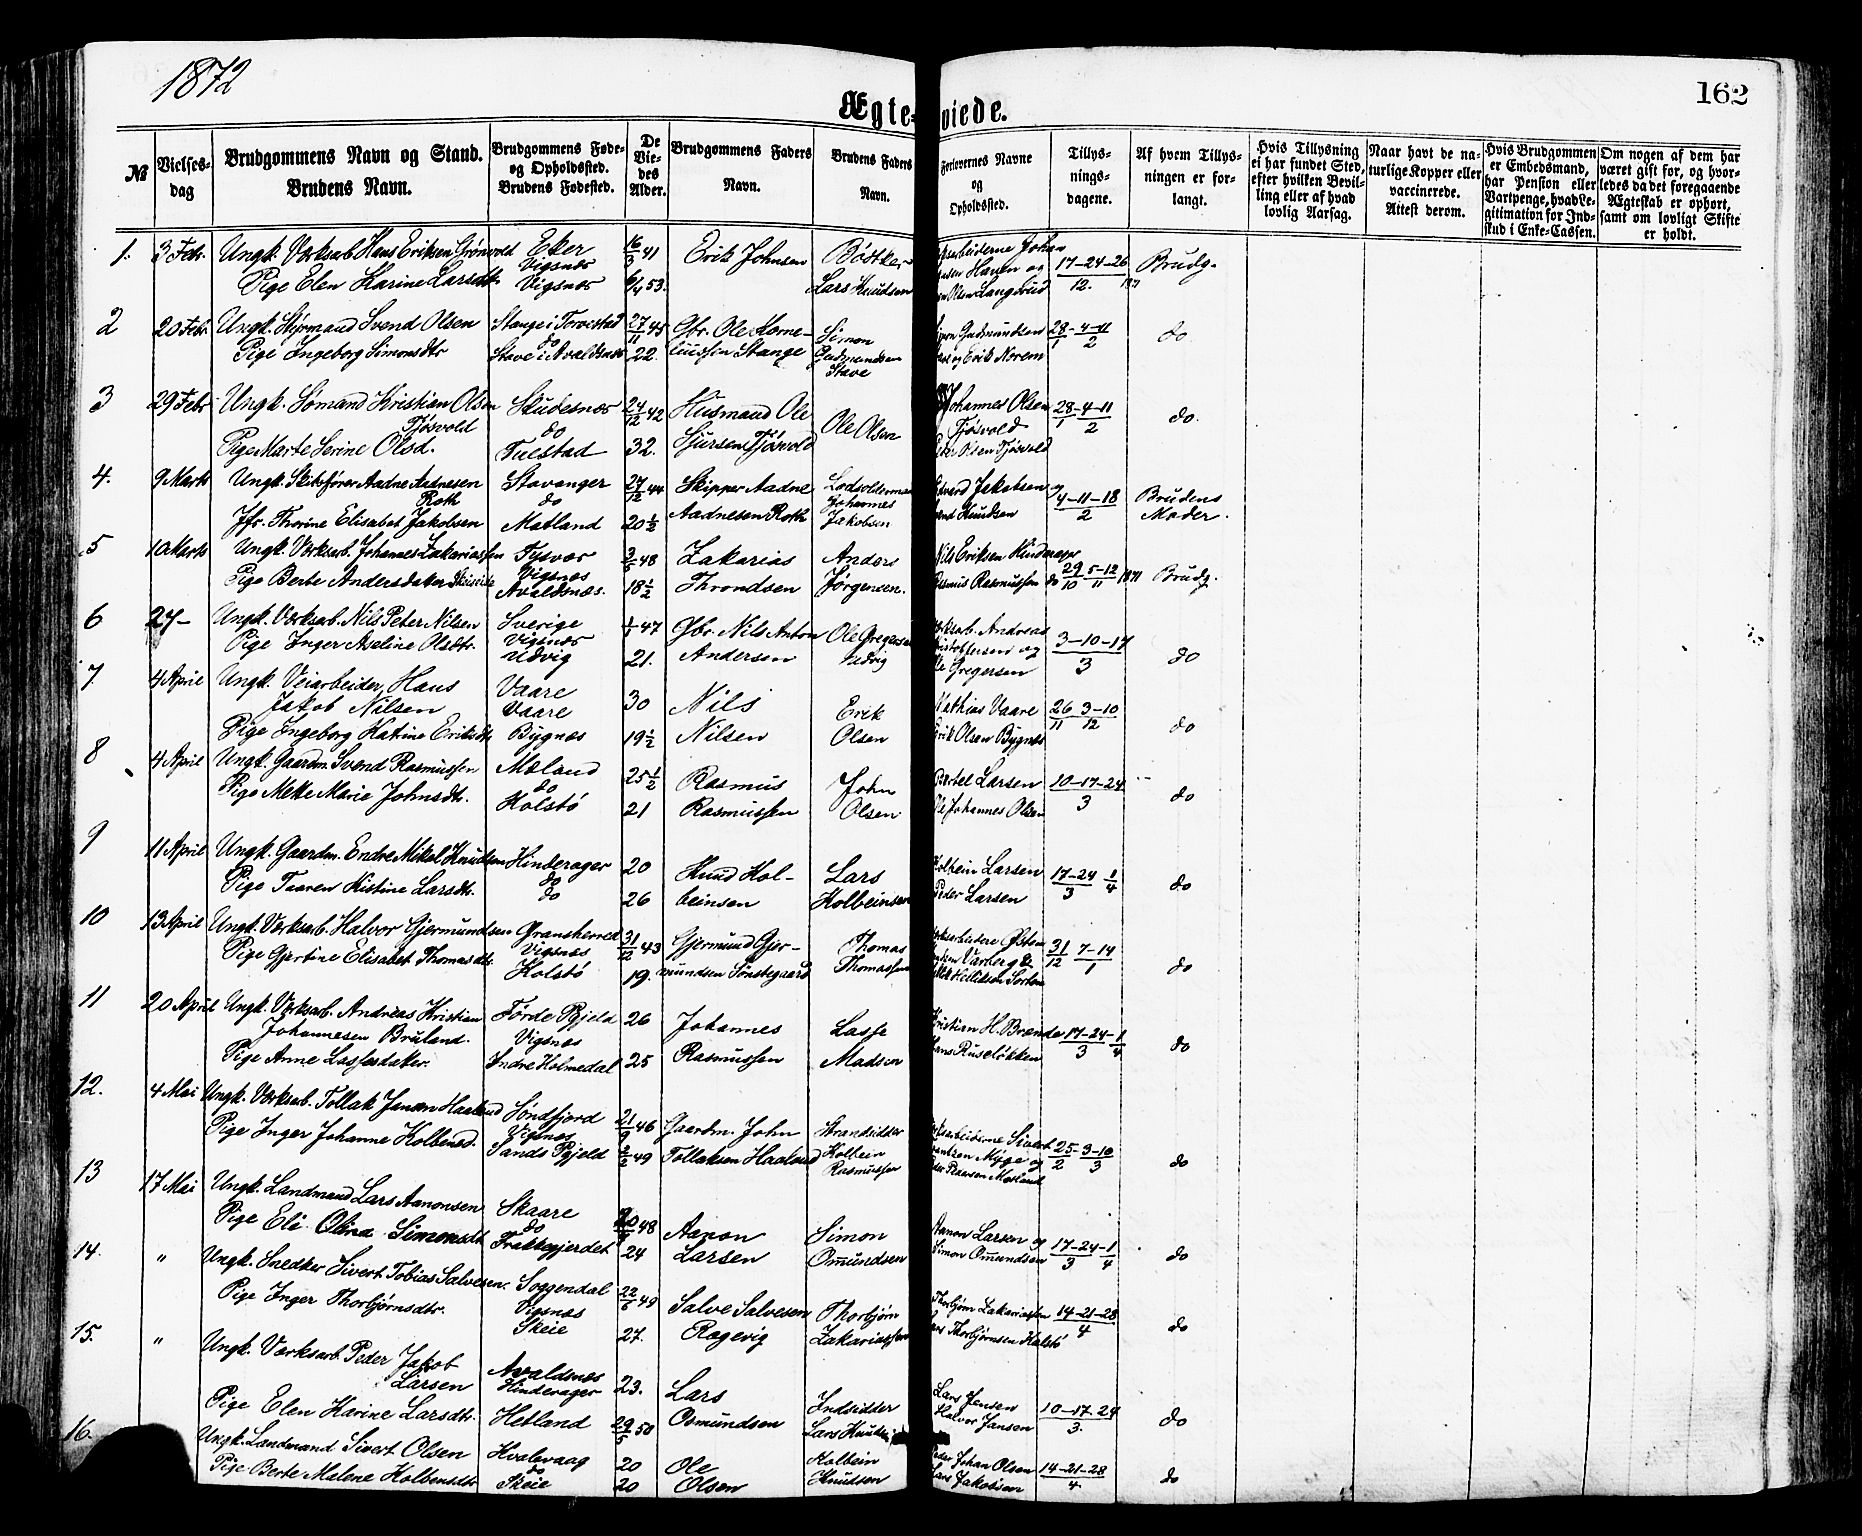 1872
162
Ægte-viede.
№
Vielses-dag
Brudgommens Navn og Stand.
Brudens Navn.
Brudgommens Føde- og Opholdssted.
Brudens Fødested.
De Vie-des Alder.
Brudgommens Faders Navn.
Brudens Faders Navn.
Forlovernes Navne og Opholdssted.
Tillys-nings-dagene.
Af hvem Tillys-ningen er for-langt.
Hvis Tillysning ei har fundet Sted, efter hvilken Bevil-ling eller af hvad lovlig Aarsag.
Naar havt de na-turlige Kopper eller vaccinerede. Attest derom.
Hvis Brudgommen er Embedsmand, har Pension eller Vartpenge, hvad Le-gitimation for Ind-skud i Enke-Cassen.
Om nogen af dem har været gift før, og hvor-ledes da det foregaaende Ægteskab er ophørt, samt om lovligt Skifte er holdt.
1. 3 Febr. Ungk. Værksarb. Hans Eriksen Grønvold Eker 41 Erik Johnsen Bödtker Johan 17-24-26 Brudg.
Vigsnæs Hansen og
Pige Elen Karine Larsdtr Vigsnæs 53. Lars Knudsen Olsen Langerud 12.
2 20 Febr. Ungk. Skjømand Svend Olsen Stange i Torvestad 27/11 45 Gbr. Ole Korne- Simon Gudmundsen 28-4-11 do
Pige Ingeborg Simonsdtr Stave i Avaldsnæs 22. liussen Stange Gudmundsen Stave og Erik Norem 1 2
3 29 Febr Ungk. Sømand Kristian Olsen Skudesnæs 24/12 42 Husmand Ole Ole Olsen Johannes Olsen 28-4-11 do.
Tjøsvold do Tjøsvold 1 2
Pige Marte Serine Olsd. Tuestad 32. Sjursen Tjøsvold Olsen Tjøsvold
4. 9 Marts Ungk. Skibsfører Aadne Aadnesen Stavanger 27/12 44 Skipper Aadne Lodsolderman Jakobsen og 4-11-18 Brudens
Roth do Johannes 2 Moder.
Jfr. Thorine Elisabet Jakobsen Matland 20 1/2 Aadnesen Roth Jakobsen Knudsen
5 10 Marts Ungk. Værksarb. Johannes Zakariassen Tysvær 48 Zakarias Anders Nils Eriksen Hinderager 29 5-12 1871 Brudg.
Vigsnæs 10 11
Pige Berte Andersdater Avaldsnæs. 18 1/2 Throndsen Jørgensen. Rasmus Rasmussen do
6 27- Ungk. Værksarb. Nils Peter Nilsen Sverige 47 Gbr. Nils Anton Ole Gregersen Andreas 3-10-17 do
Vigsnæs og 3
Pige Inger Aseline Olsdtr. Udvig 21. Andersen Udvig Gregersen
7 4 April Ungk. Veiarbeider, Hans Vaare 30 Nils Erik Mathias Vaare 26 3-10 do
Jakob Nilsen Vaare 11 12
Pige Ingeborg Katrine Eriksdtr Bygnæs 19 1/2 Nilsen Olsen Erik Olsen Bygnæs
8 4 April Ungk. Gaardm. Svend Rasmussen Mæland 25 1/2 Rasmus John Bertel Larsen 10-17-24 do
do 3
Pige Mette Marie Johnsdtr. Kolstö 21 Rasmussen Olsen Ole Johannes Olsen
9 11 April Ungk. Gaardm. Endre Mikal Knudsen Hinderager 20 Knud Kol- Lars Kolbein Larsen 17-24 1 do
do 3 4
Pige Taaren Kistine Larsdtr. do 26 beinsen Kolbeinsen Peder Larsen
10 13 April Ungk. Værksarb. Halvor Gjermundsen Gransherred 31/12 43 Gjermund Gjer- Thomas Østen 31 7-14 do
Vigsnæs Varberg & 12 1
Pige Gjertine Elisabet Thomasdtr. Kolstö 19. mundsen Tinstegaard Thomassen
11 20 April Ungk. Værksarb. Andreas Kristian Førde Ryfeld 26 Johannes Lasse Kristian H. Brænde 17-24-1 do
Johannesen Bruland. Vigsnæs 3 4
Pige Anne Lassesdater. Indre Holmedal 25 Rasmussen Madsen Hans Ruseløkken
12. 4 Mai Ungk. Værksarb. Tollak Jansen Haaland Söndfjord 21/9 46 Gaardm. John Strandsidder Sivert 25-3-10 do
Vigsnæs Kolbein Myge og 2 3
Pige Inger Johanne Kolbensd. Sands Ryfeld 49 Tollaksen Haaland Rasmussen
13 17 Mai Ungk. Landmand Lars Aanonsen Skaare 48 Aanon Simon Aanon Larsen og 17-24-1 do
do 3 4
Pige Eli Olina Simonsdt Frakkagjerdet 24 Larsen Omundsen Simon Omundsen
14. " Ungk. Snedker Sivert Tobias Salvesen. Soggendal 22/6 49 Salve Salvesen Thorbjørn Thorbjørn Zakariassen 14-21-28 do
Vigsnæs 4
Pige Inger Thorbjørnsdtr. Skeie 27. Rægevig Zakariassen Thorbjørnsen Kalstö
15. " Ungk. Værksarb. Peder Jakob Avaldsnæs 23. Lars Indsidder Lars Jensen 10-17-24 do
Larsen Hinderager 3.
Pige Elen Karine Larsdtr. Hetland 29/5 50 Osmundsen Lars Knudsen Halvor Jansen
16. Ungk. Landmand Sivert Olsen Kvalevaag 20 Ole Kolbein Peder Johan Olsen 14-21-28 do
do 4.
Pige Berte Malene Kolbensdtr Skeie 20 Olsen Knudsen Lars Jakobsen